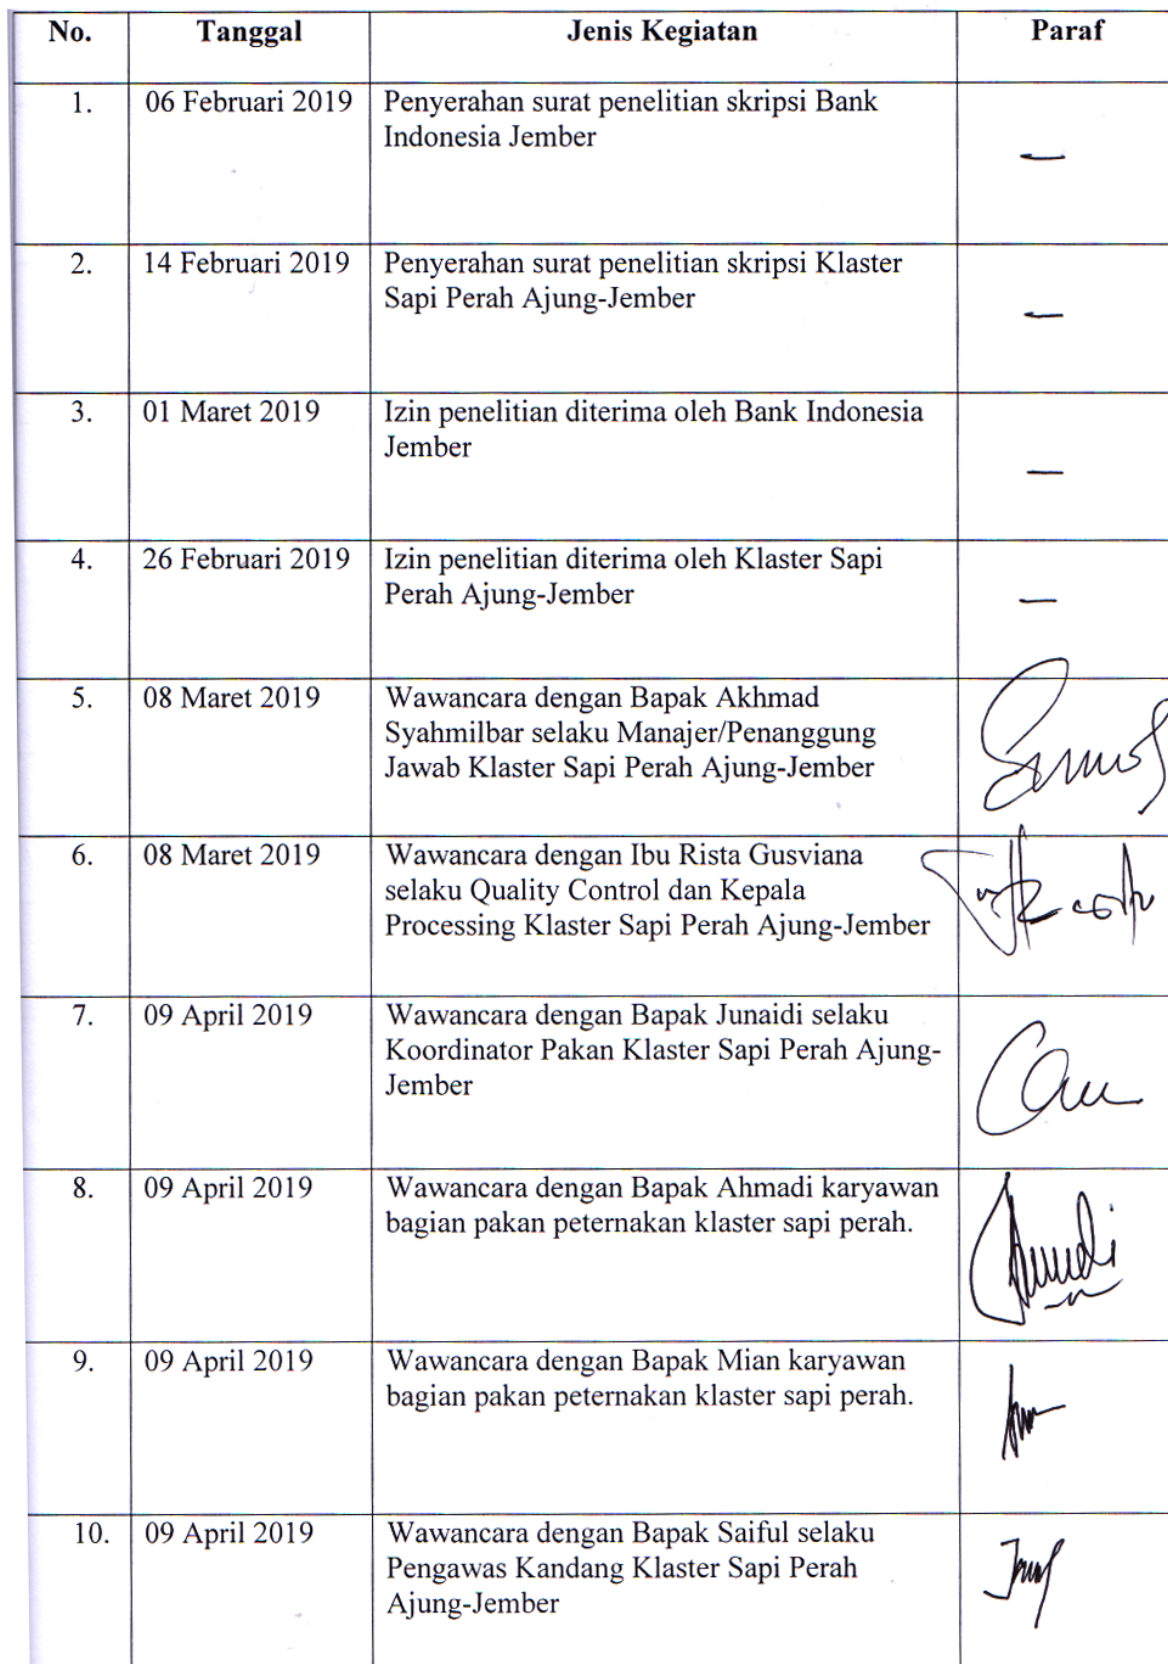 No. Tanggal Jenis Kegiatan Paraf
1. 06 Februari 2019 Penyerahan surat penelitian skripsi Bank
Indonesia Jember
2. 14 Februari 2019 Penyerahan surat penelitian skripsi Klaster
Sapi Perah Ajung-Jember
3. 01 Maret 2019 Izin penelitian diterima oleh Bank Indonesia
Jember
4. 26 Februari 2019 Izin penelitian diterima oleh Klaster Sapi
Perah Ajung-Jember
5. 08 Maret 2019 Wawancara dengan Bapak Akhmad
Syahmilbar selaku Manajer/Penanggung
Jawab Klaster Sapi Perah Ajung-Jember
6. 08 Maret 2019 Wawancara dengan Ibu Rista Gusviana
selaku Quality Control dan Kepala
Processing Klaster Sapi Perah Ajung-Jember
7. 09 April 2019 Wawancara dengan Bapak Junaidi selaku
Koordinator Pakan Klaster Sapi Perah Ajung-
Jember
8. 09 April 2019 Wawancara dengan Bapak Ahmadi karyawan
bagian pakan peternakan klaster sapi perah.
9. 09 April 2019 Wawancara dengan Bapak Mian karyawan
bagian pakan peternakan klaster sapi perah.
10. 09 April 2019 Wawancara dengan Bapak Saiful selaku
Pengawas Kandang Klaster Sapi Perah
Ajung-Jember